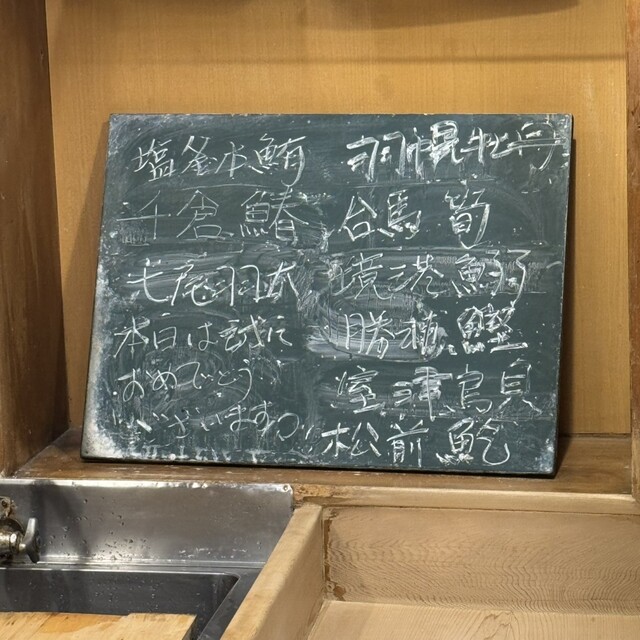 塩釜本鮪
千倉鰆
七尾羽太
本日は誠に
おめでとう
ございます
羽幌牡丹
合馬筍
境港
勝浦鰹
室津鳥貝
松前鮑